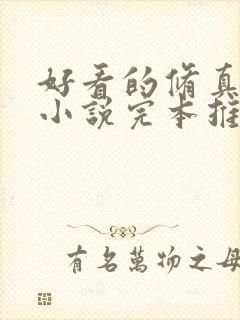 好看的脩真
小説完本推
有名萬物之母